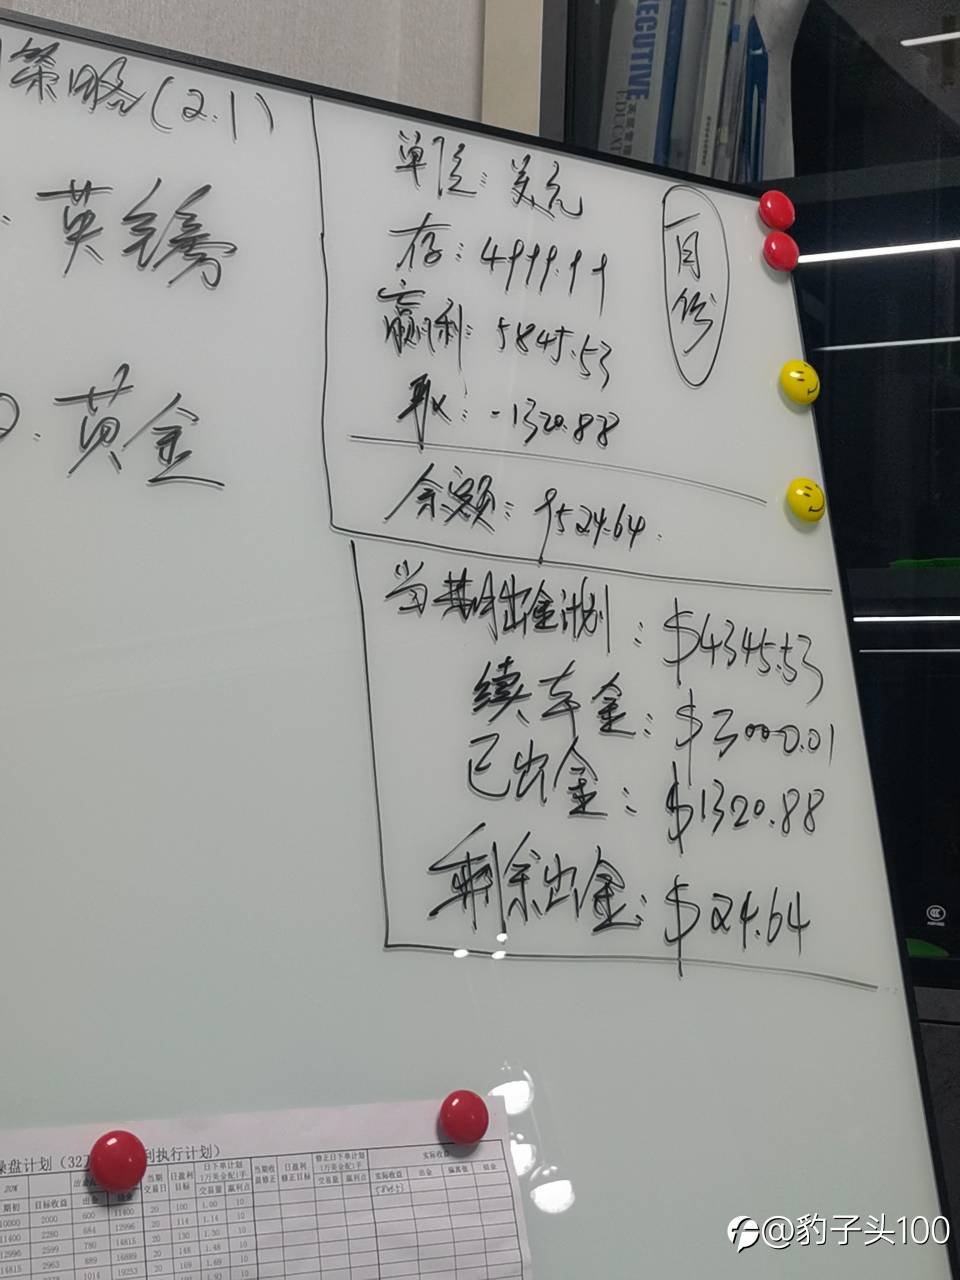 策略(2.1)
英镑
黄金
单位：美元
存：4999.99
赢利：5845.53
取：-1320.88
余额：9524.64
一月份
当期出金计划：$4345.53
续存金：$3000.01
已出金：$1320.88
剩余出金：$24.64
EXECUTIVE
利执行计划）
日下单计划
修正日下单计划
实际收益
1万美金配1手
当期
交易日
日盈利
目标
交易量
赢利点
实际收益
出金
目标收益
10000 2000 600 11400 20 100 1.00 10
11400 2280 684 12996 20 114 1.14 10
12996 2599 780 14815 20 130 1.30 10
14815 2963 889 16889 20 148 1.48 10
1014 19253 20 169 1.69 10
@豹子头100